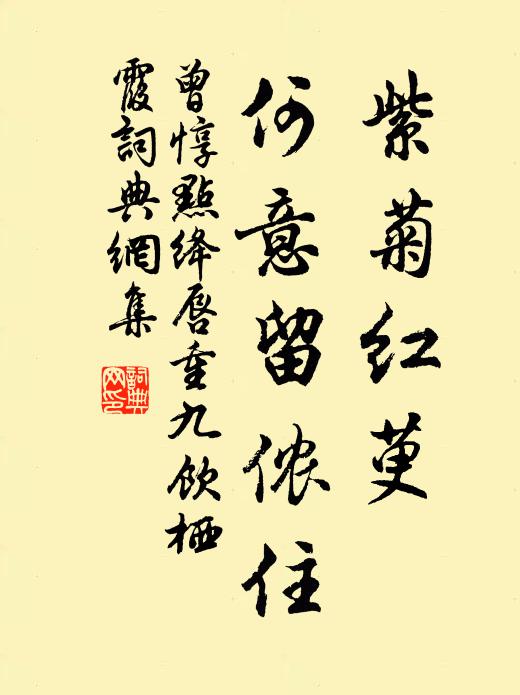 紫菊红萸
何意留侬住
曾惇點絳唇重九飲栖
霞詞典網集
詞典
网印